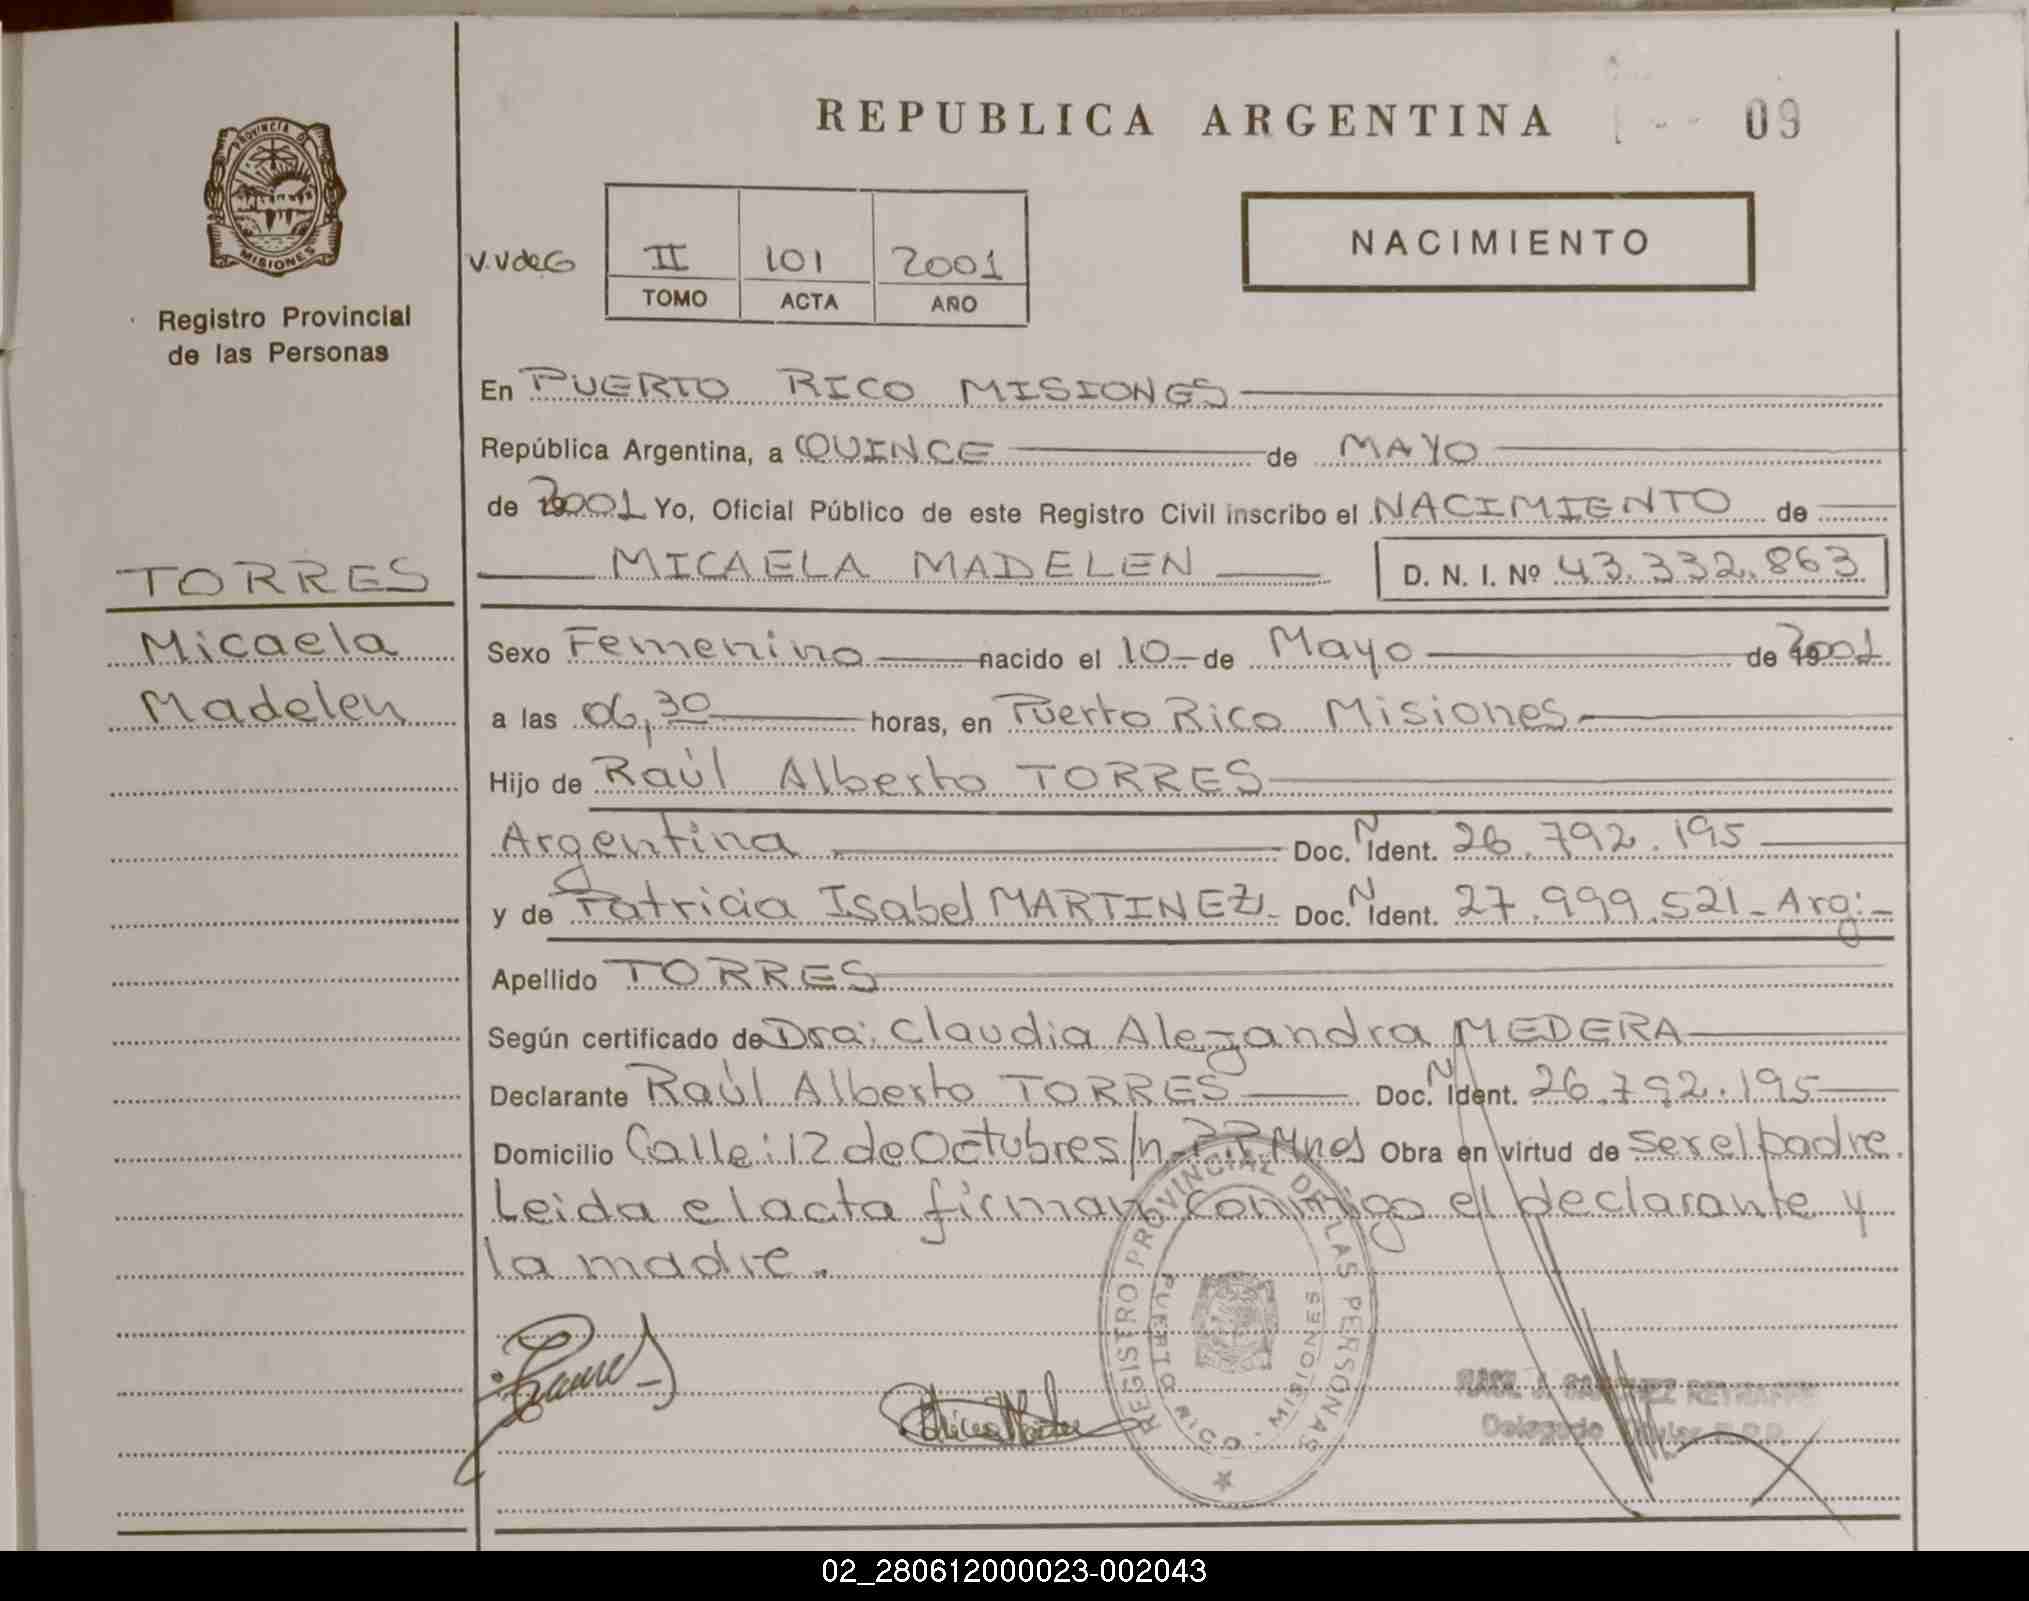 REPUBLICA ARGENTINA
09
PROVINCIA DE
MISIONES
Registro Provincial
de las Personas
V.VdeG
II 101 2001
TOMO ACTA AÑO
NACIMIENTO
En PUERTO RICO MISIONES
República Argentina, a QUINCE de MAYO
de 2001 Yo, Oficial Público de este Registro Civil inscribo el NACIMIENTO de
MICAELA MADELEN D. N. I. Nº 43.332.863
TORRES
Micaela
Madelen
Sexo Femenino nacido el 10 de Mayo de 2001
a las 06,30 horas, en Puerto Rico Misiones
Hijo de Raúl Alberto TORRES
Argentina Doc. N Ident. 26.792.195
y de Patricia Isabel MARTINEZ Doc. N Ident. 27.999.521 - Arg:-
Apellido TORRES
Según certificado de Dra: Claudia Alejandra MEDERA
Declarante Raúl Alberto TORRES Doc. N Ident. 26.792.195
Domicilio Calle: 12 de Octubre s/n P.R Mnes Obra en virtud de ser el padre.
Leida el acta firman conmigo el declarante y
la madre.
REGISTRO PROVINCIAL DE LAS PERSONAS
PUERTO RICO - MISIONES
Delegado Titular R.P.P.
02_280612000023-002043